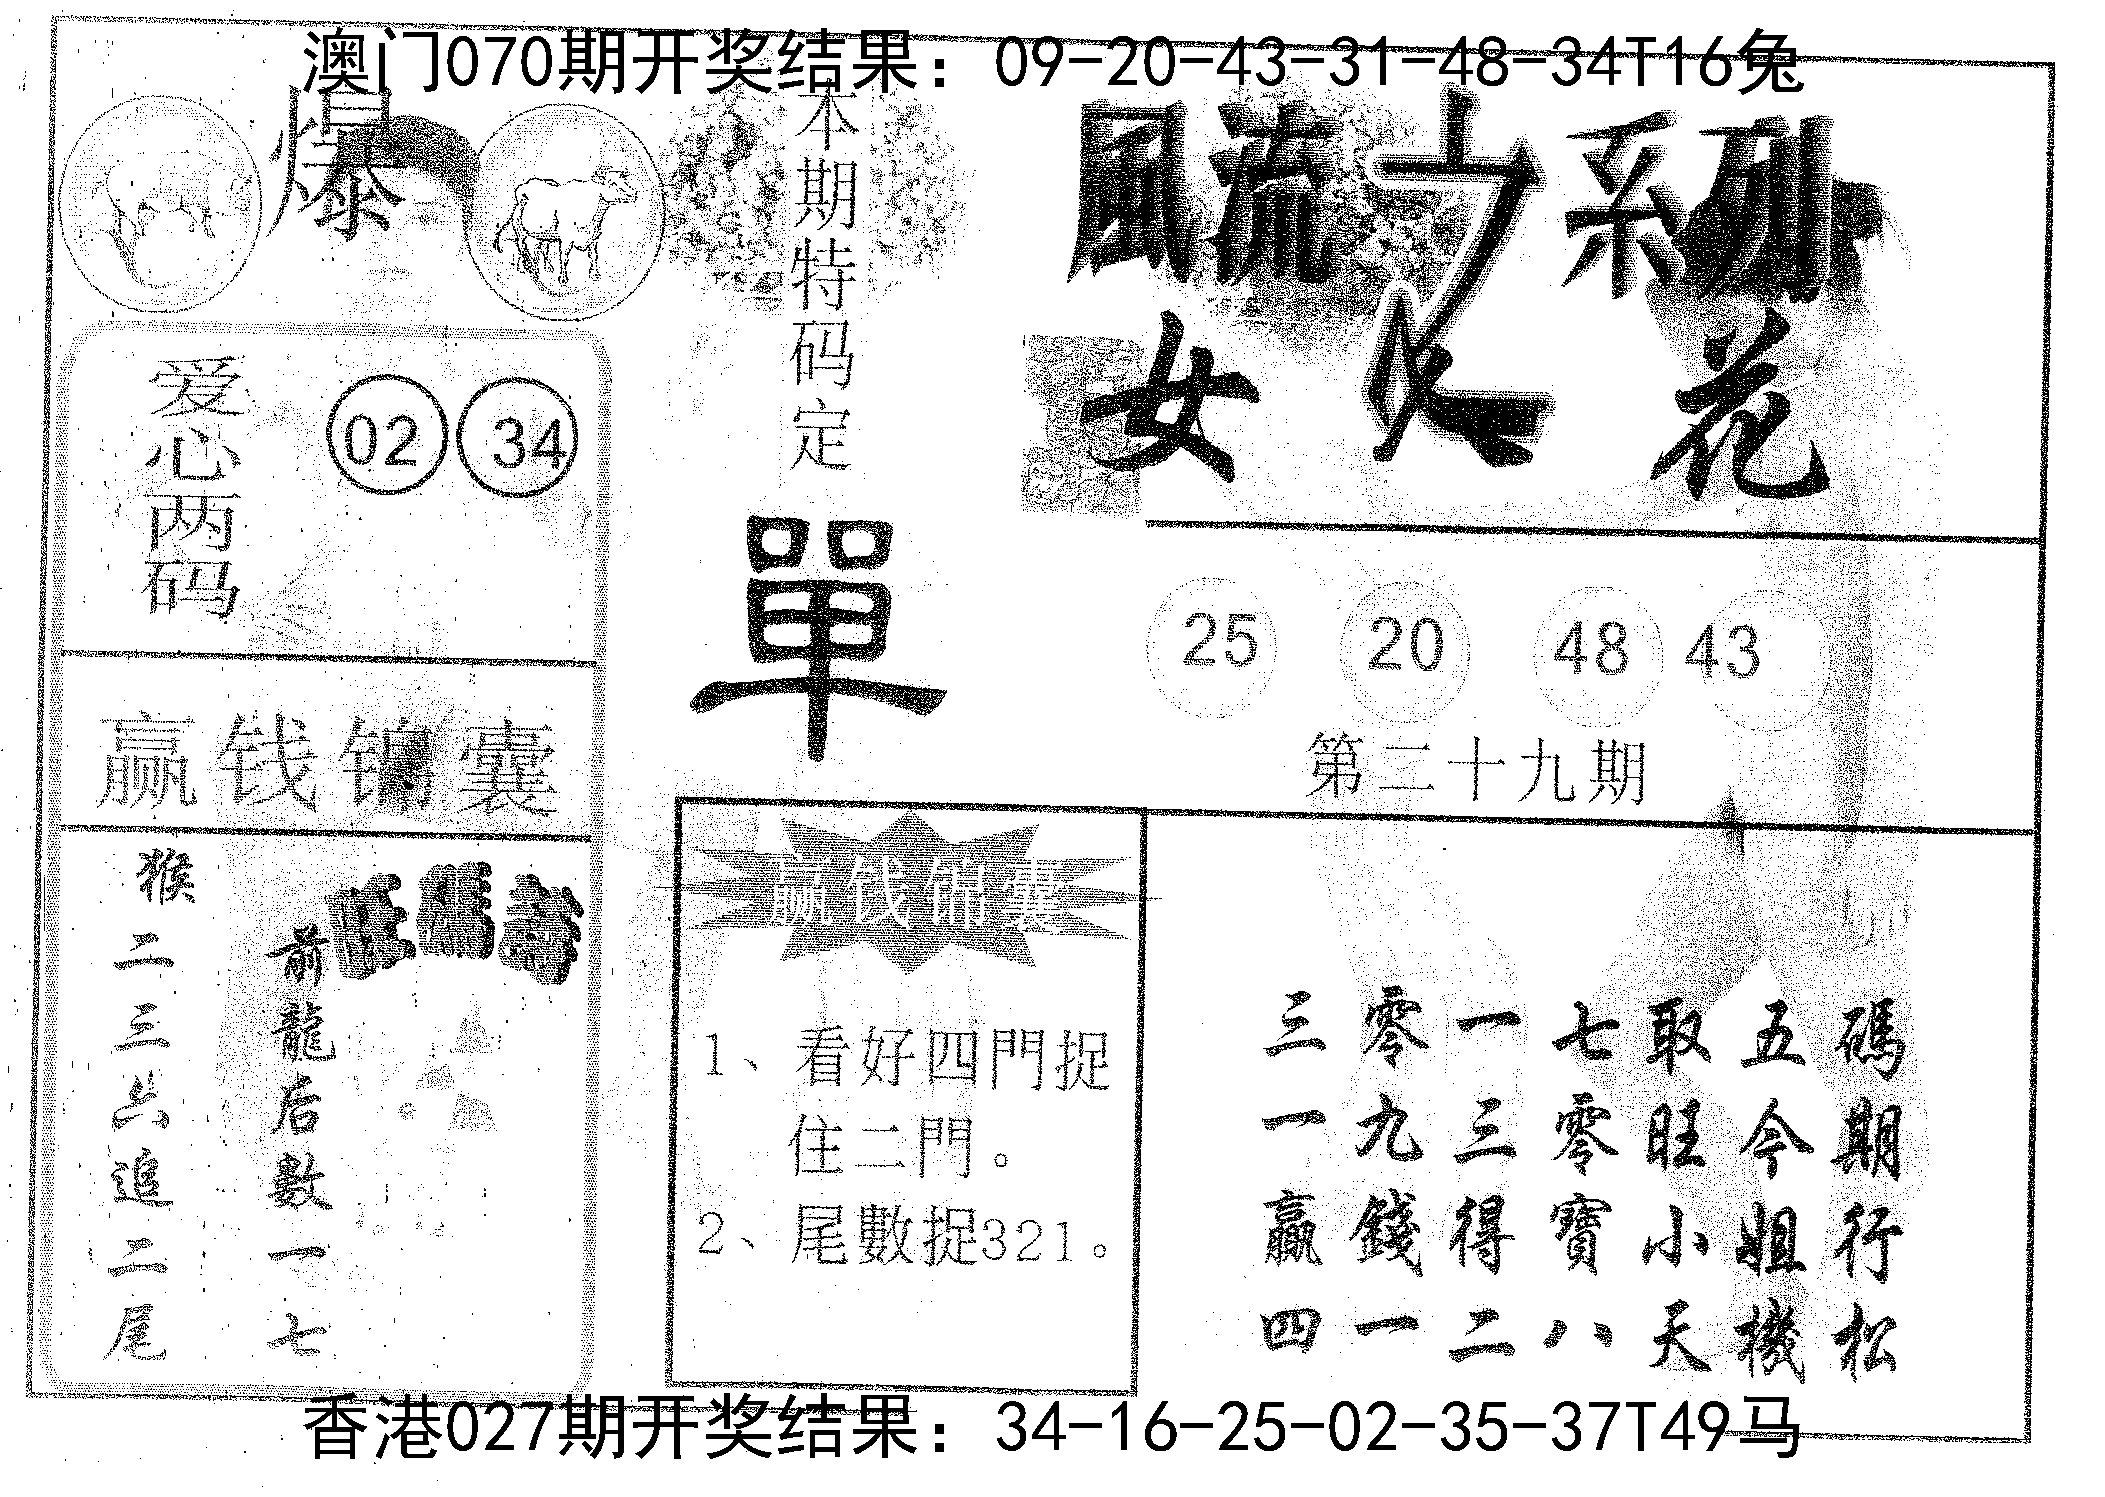 澳门070期开奖结果：09-20-43-31-48-34T16兔
爆
本期特码定
單
風流女人系列
女人花
爱心两码
02 34
25 20 48 43
第二十九期
赢钱锦囊
猴二三六追二尾
前龍后數一七
赢钱锦囊
1、看好四門捉
住二門。
2、尾數捉321。
三零一七取五碼
一九三零旺今期
贏錢得寶小姐行
四一二八天機松
香港027期开奖结果：34-16-25-02-35-37T49马